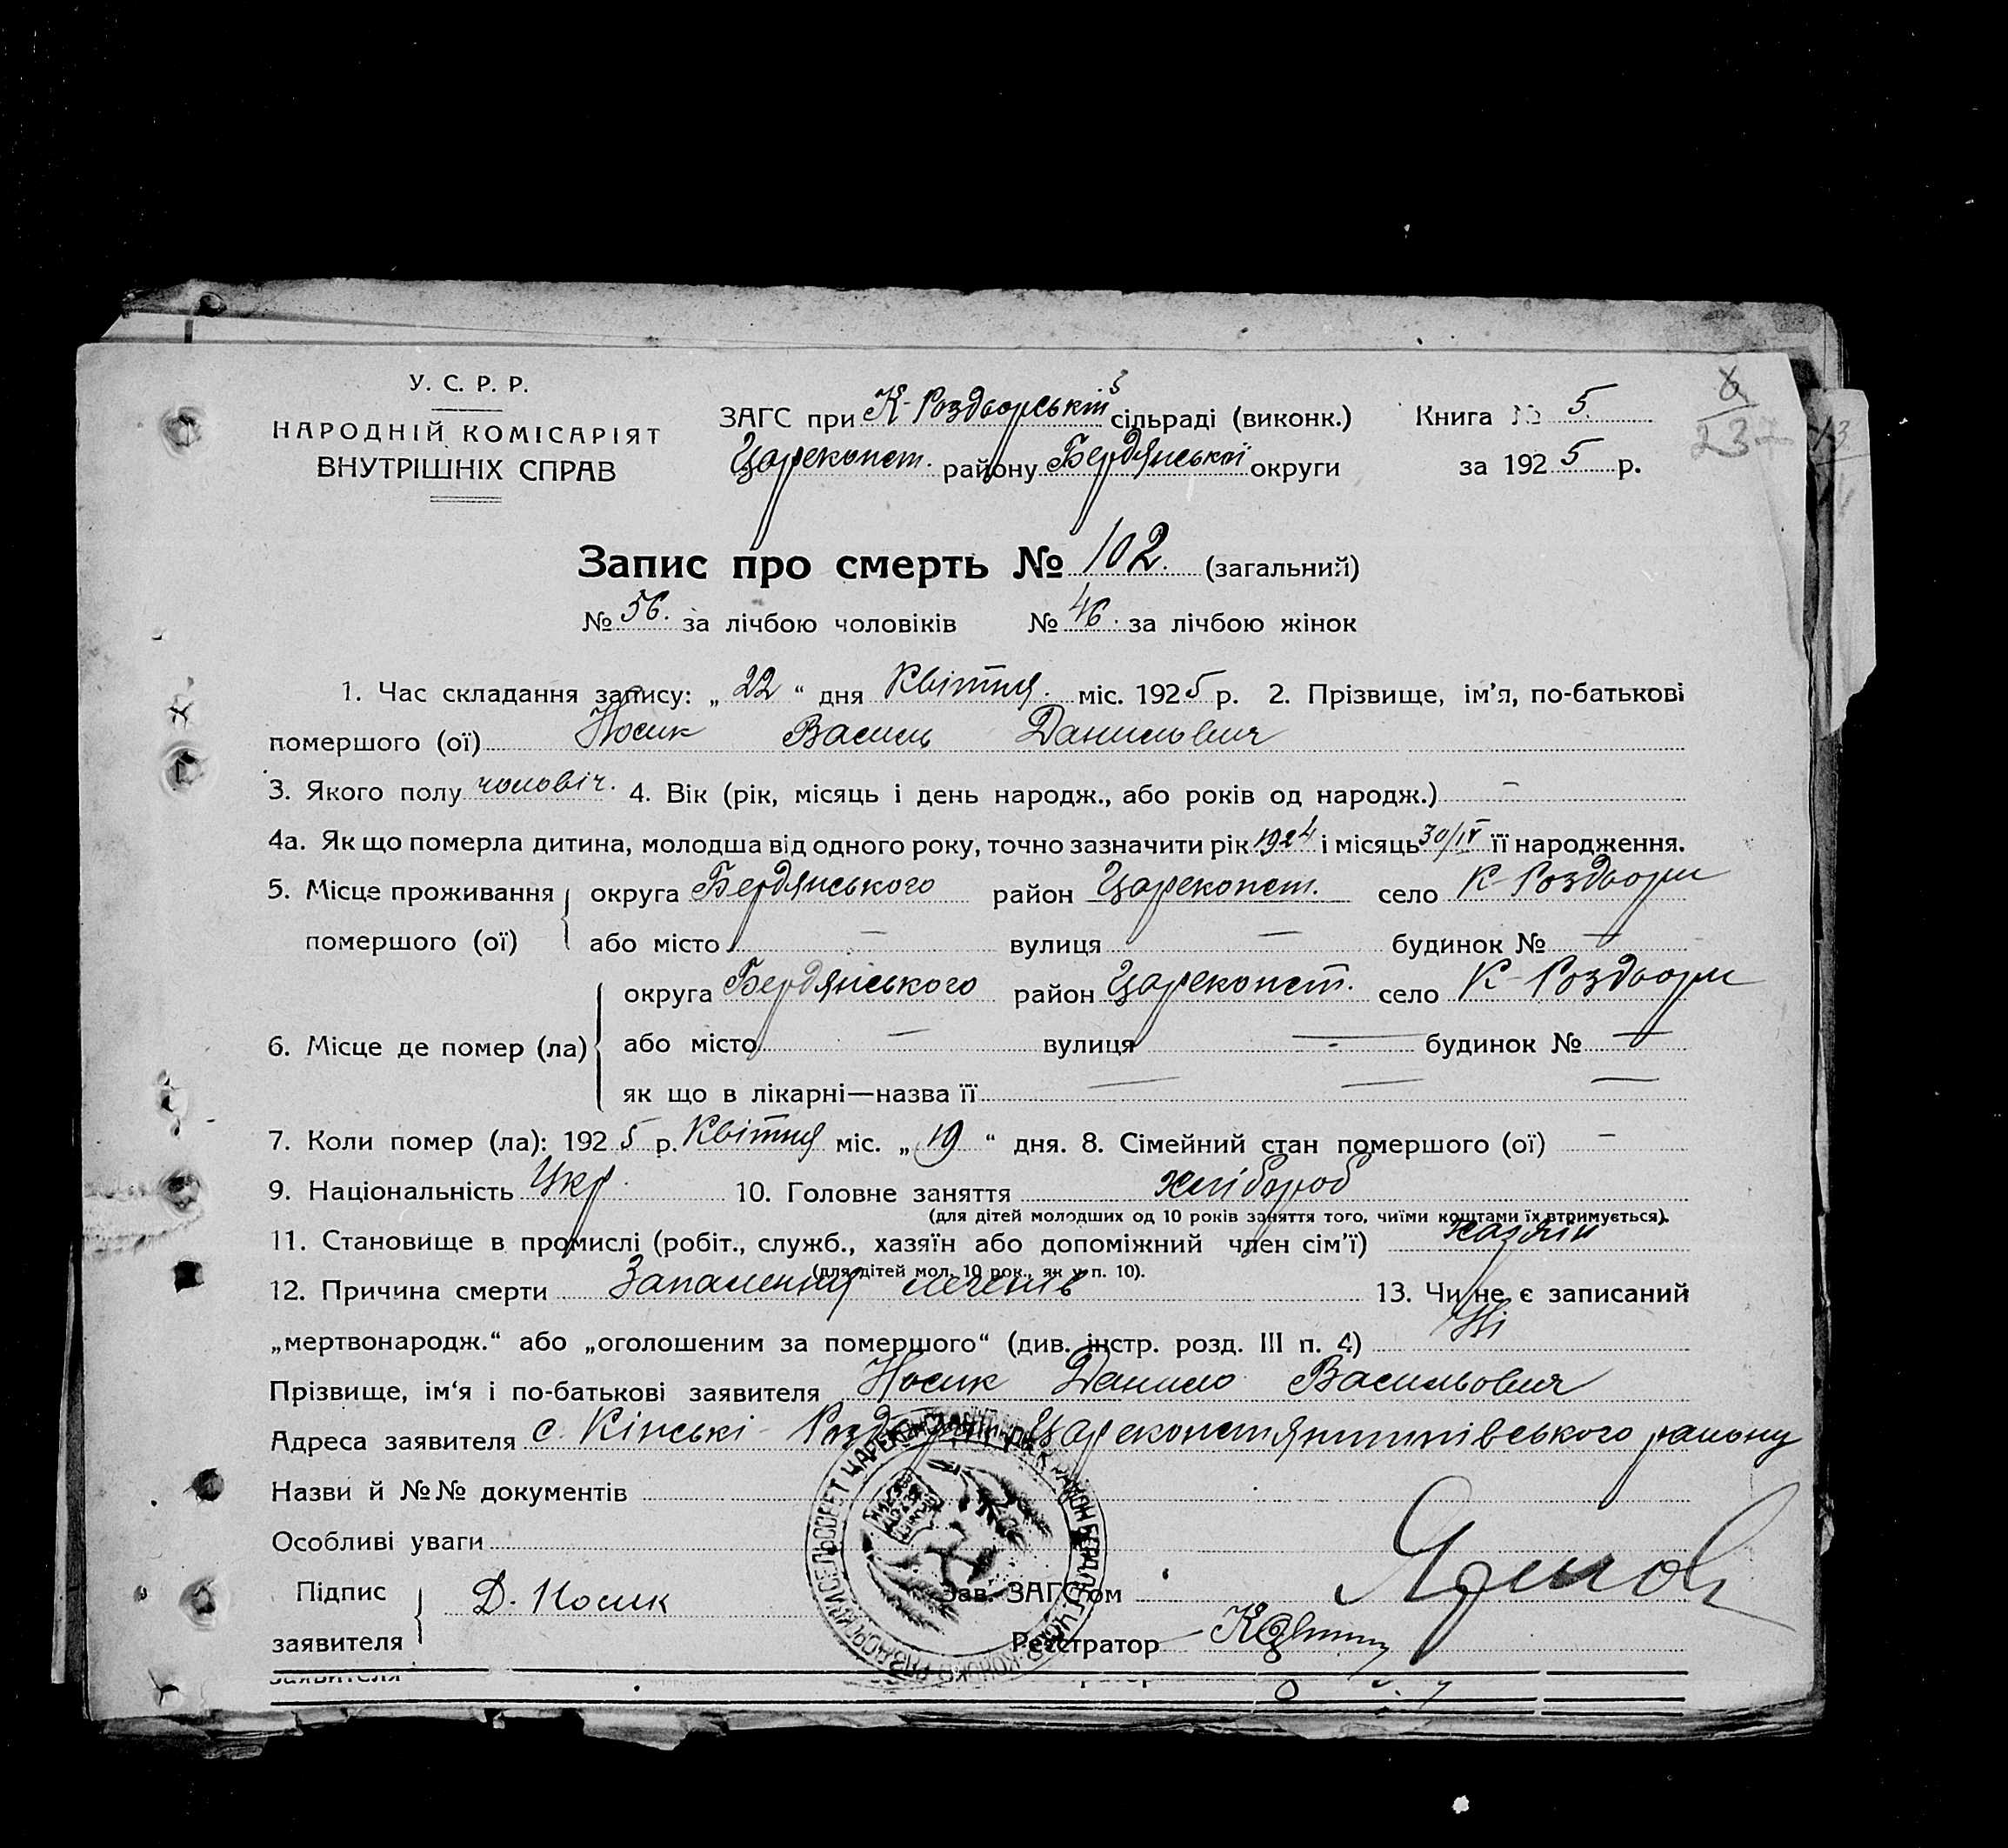 У. С. Р. Р.
НАРОДНІЙ КОМІСАРІЯТ
ВНУТРІШНІХ СПРАВ
ЗАГС при К-Роздорській сільраді (виконк.) Книга № 5.
Цареконст. району Бердянської округи за 1925 р.
6
237
Запис про смерть № 102. (загальний)
№ 56. за лічбою чоловіків № 46. за лічбою жінок
1. Час складання запису: „22“ дня Квітня. міс. 1925 р. 2. Прізвище, ім'я, по-батькові
помершого (ої) Носик Василь Данилович
3. Якого полу чоловіч. 4. Вік (рік, місяць і день народж., або років од народж.) —
4а. Як що померла дитина, молодша від одного року, точно зазначити рік 1924 і місяць 30/IV її народження.
5. Місце проживання округа Бердянського район Цареконст. село К-Роздори
помершого (ої) або місто — вулиця — будинок № —
округа Бердянського район Цареконст. село К-Роздори
6. Місце де помер (ла) або місто — вулиця — будинок № —
як що в лікарні—назва її — — —
7. Коли помер (ла): 1925 р. Квітня міс. „19“ дня. 8. Сімейний стан помершого (ої) —
9. Національність Укр. 10. Головне заняття хлібороб
(для дітей молодших од 10 років заняття того, чиїми коштами їх втримується).
11. Становище в промислі (робіт., служб., хазяїн або допоміжний член сім'ї) хазяїн
(для дітей мол. 10 рок., як у п. 10).
12. Причина смерти Запалення легенів 13. Чи не є записаний
„мертвонародж.“ або „оголошеним за помершого“ (див. інстр. розд. III п. 4) Ні
Прізвище, ім'я і по-батькові заявителя Носик Данило Васильович
Адреса заявителя с. Кінські-Роздори Цареконстянтинівського району
Назви й №№ документів
Особливі уваги
Підпис
заявителя Д. Носик
Зав. ЗАГС'ом
Реєстратор
заявителя